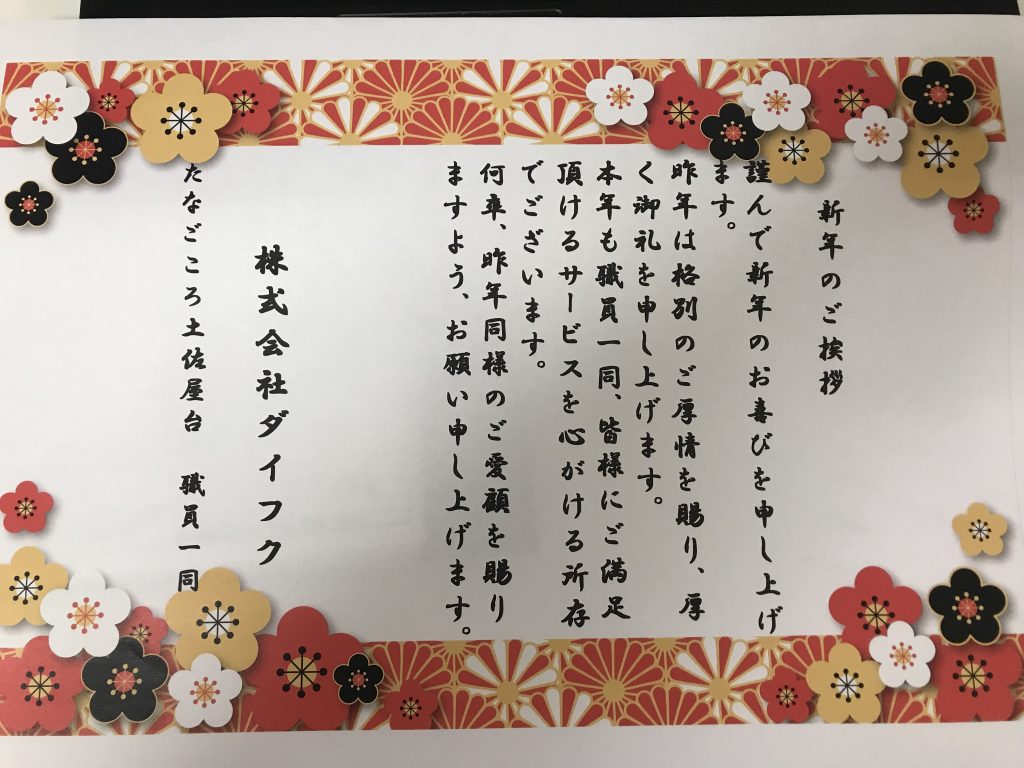 新年のご挨拶
謹んで新年のお喜びを申し上げ
ます。
昨年は格別のご厚情を賜り、厚
く御礼を申し上げます。
本年も職員一同、皆様にご満足
頂けるサービスを心がける所存
でございます。
何卒、昨年同様のご愛顧を賜り
ますよう、お願い申し上げます。
株式会社ダイフク
たなごころ土佐屋台　職員一同